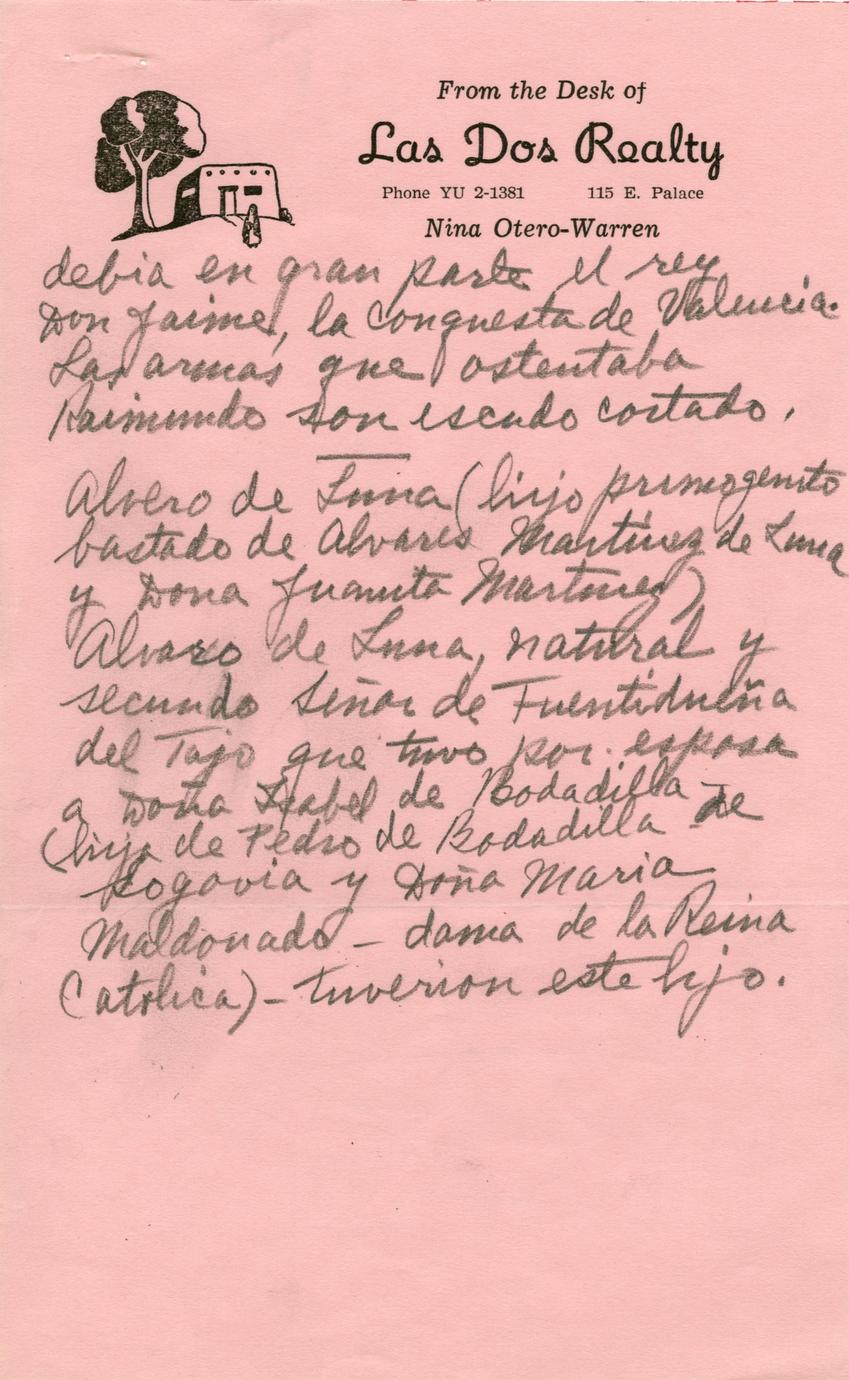 From the Desk of
Las Dos Realty
Phone YU 2-1381 115 E. Palace
Nina Otero-Warren
debia en gran parte el rey
Don Jaime, la conquesta de Valencia.
Las armas que ostentaba
Raimundo son escudo cortado.
Alvero de Luna (hijo primogenito
bastado de Alvares Martinez de Luna
y Dona Juanita Martinez)
Alvaro de Luna, natural y
secundo Señor de Fuentidueña
del Tajo que tuvo por esposa
a Doña Isabel de Bodadilla
(hija de Pedro de Bodadilla de
Sogovia y Doña Maria
Maldonado - dama de la Reina
Catolica) - tuverion este hijo.